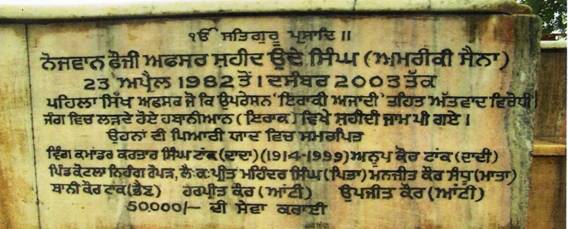 ੴ ਸਤਿਗੁਰੂ ਪ੍ਰਸਾਦਿ ॥
ਨੋਜਵਾਨ ਫੌਜੀ ਅਫਸਰ ਸ਼ਹੀਦ ਉਦੇ ਸਿੰਘ (ਅਮਰੀਕੀ ਸੈਨਾ)
23 ਅਪ੍ਰੈਲ 1982 ਤੋਂ 1 ਦਸੰਬਰ 2003 ਤੱਕ
ਪਹਿਲਾ ਸਿੱਖ ਅਫਸਰ ਜੋ ਕਿ ਉਪਰੇਸ਼ਨ 'ਇਰਾਕੀ ਅਜਾਦੀ' ਤਹਿਤ ਅੱਤਵਾਦ ਵਿਰੋਧੀ
ਜੰਗ ਵਿਚ ਲੜਦੇ ਹੋਏ ਹਬਾਨੀਆਨ (ਇਰਾਕ) ਵਿਖੇ ਸ਼ਹੀਦੀ ਜਾਮ ਪੀ ਗਏ।
ਉਹਨਾਂ ਦੀ ਪਿਆਰੀ ਯਾਦ ਵਿਚ ਸਮਰਪਿਤ
ਵਿੰਗ ਕਮਾਂਡਰ ਕਰਤਾਰ ਸਿੰਘ ਟਾਂਕ (ਦਾਦਾ) (1914-1999) ਅਨੂਪ ਕੌਰ ਟਾਂਕ (ਦਾਦੀ)
ਪਿੰਡ ਕੋਟਲਾ ਨਿਹੰਗ ਰੋਪੜ, ਲੈ:ਕ:ਪ੍ਰੀਤ ਮਹਿੰਦਰ ਸਿੰਘ (ਪਿਤਾ) ਮਨਜੀਤ ਕੌਰ ਸੰਧੂ (ਮਾਤਾ)
ਬਾਨੀ ਕੌਰ ਟਾਂਕ (ਭੈਣ) ਹਰਪੀਤ ਕੌਰ (ਆਂਟੀ) ਉਪਜੀਤ ਕੌਰ (ਆਂਟੀ)
50,000/- ਦੀ ਸੇਵਾ ਕਰਾਈ